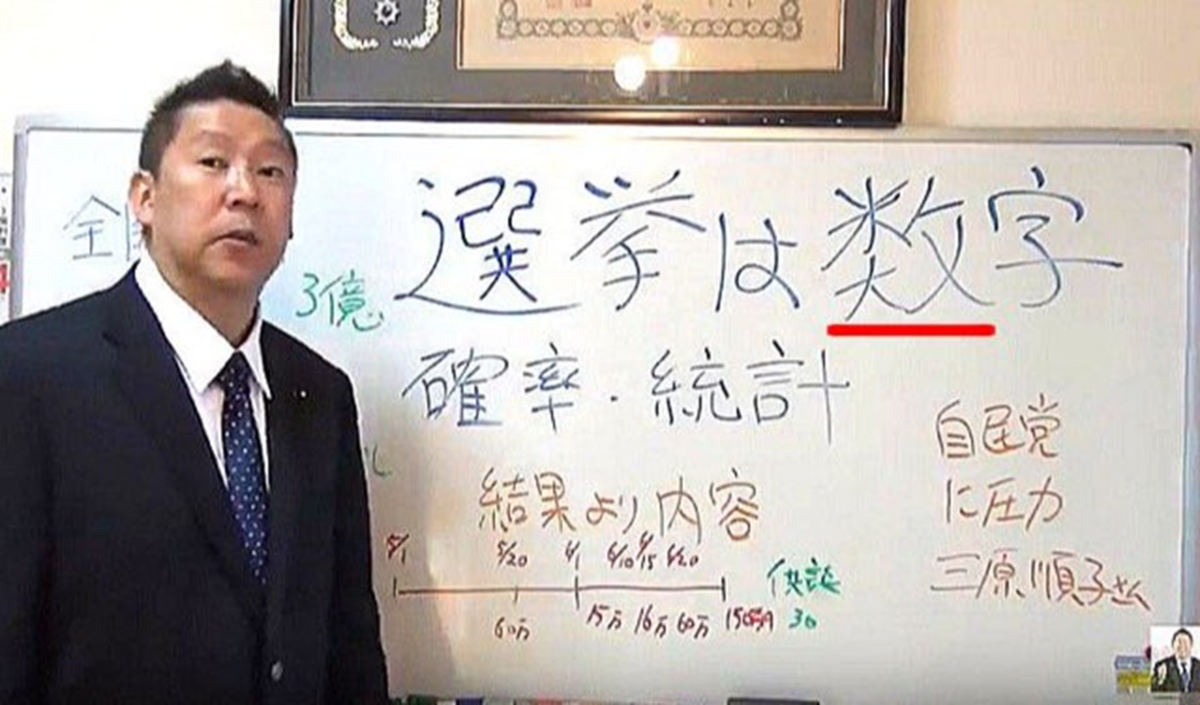 選挙は数字
全
3億
確率・統計
自民党
に圧力
三原順子さん
結果より内容
5/1 5/20 6/1 6/10 6/15 6/20
60万 15万 16万 60万 150万円
供託
30